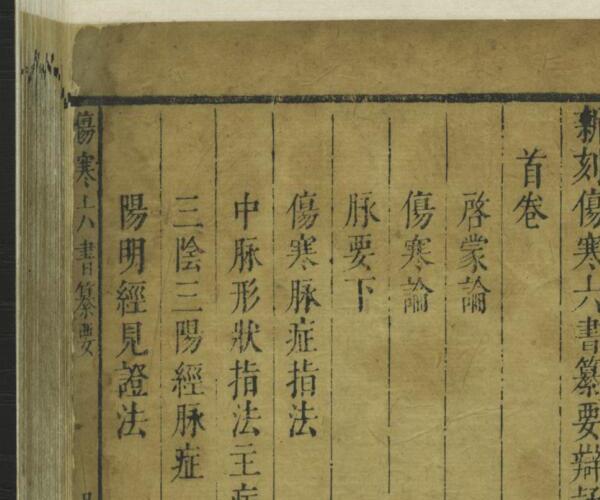 新刻傷寒六書纂要辯疑
首卷
啓蒙論
傷寒論
脉要下
傷寒脉症指法
中脉形狀指法主病
三陰三陽經脉症
陽明經見證法
傷寒六書纂要